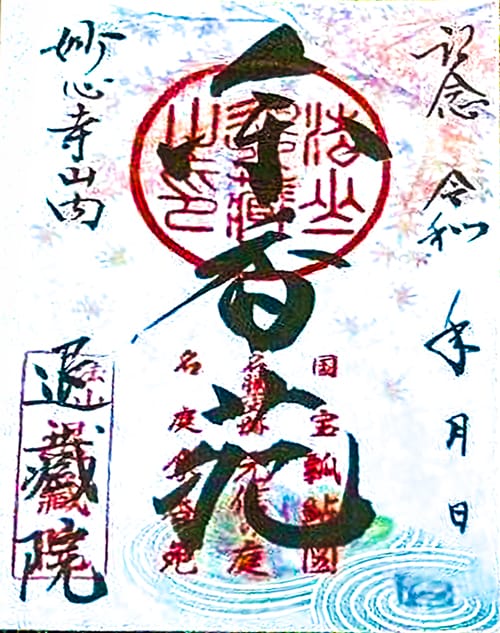 記念 令和 年 月 日
余香苑
法山
退蔵
之印
国宝瓢鮎図
名勝史跡 元信の庭
名庭余香苑
妙心寺山内
退蔵院